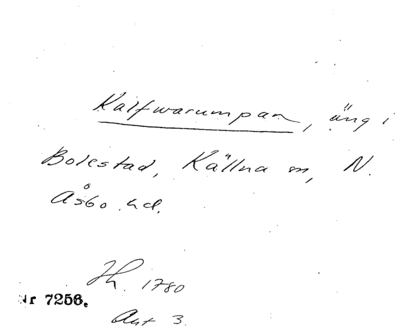 Kalfwarumpan, äng i
Bolestad, Källna sn, N.
Åsbo hd.
Jh. 1780
Nr 7256.
Akt 3